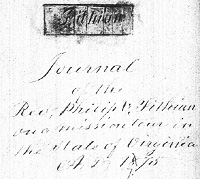 Fithian
Journal
of the
Rev. Philip V. Fithian
on a mission tour in
the State of Virginia
A. D. 1775